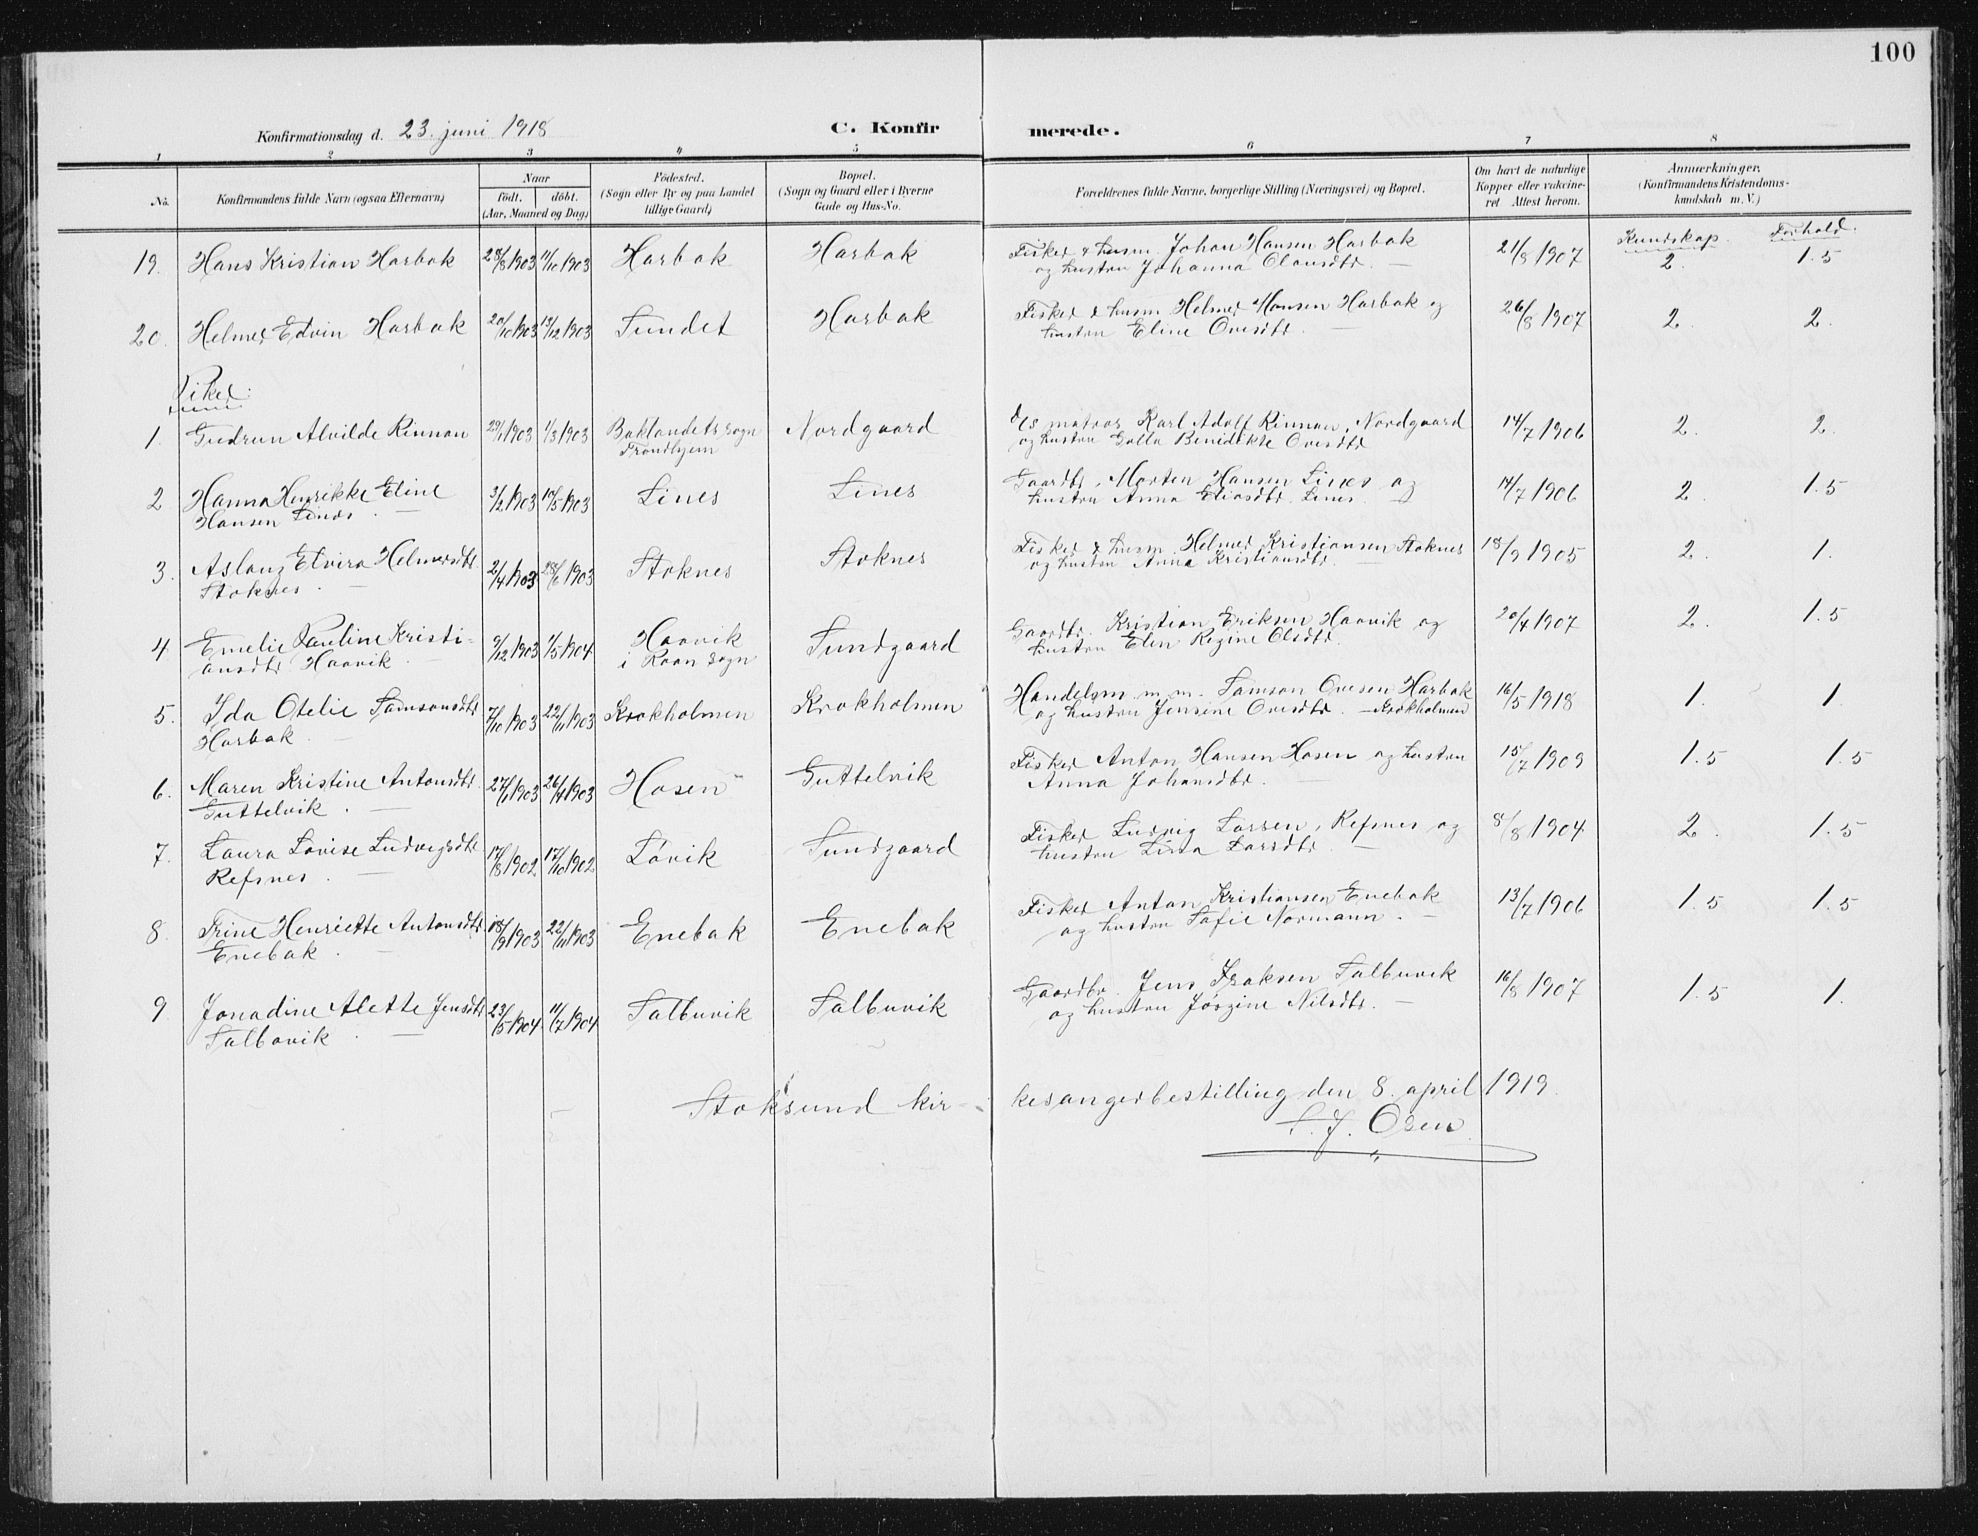 100
Konfirmationsdag d. 23. juni 1918 C. Konfirmerede.
1 2 3 4 5 6 7 8
No. Konfirmandens fulde Navn (ogsaa Efternavn) Naar födt. döbt. (Aar, Maaned og Dag) Födested. (Sogn eller By og paa Landet tillige Gaard) Bopæl. (Sogn og Gaard eller i Byerne Gade og Hus-No. Forældrenes fulde Navne, borgerlige Stilling (Næringsvei) og Bopæl. Om havt de naturlige Kopper eller vakcineret Attest herom. Anmærkninger. (Konfirmandens Kristendomskundskab m. V.)
Kundskap. Forhold.
19. Hans Kristian Harbak 28/8 1903 11/10 1903 Harbak Harbak Fisker & husm. Johan Hansen Harbak 21/8 1907 2. 1.5
og hustru Johanna Olausdtr. —
20. Helmer Edvin Harbak 20/10 1903 13/12 1903 Sundet Harbak Fisker & husm Helmer Hansen Harbak og 26/8 1907 2. 2.
hustru Eline Ovesdtr. —
Piker:
1. Gudrun Alvilde Rinnan 29/1 1903 1/3 1903 Baklandets sogn Nordgaard d/s matros Karl Adolf Rinnan, Nordgaard 14/7 1906 2. 2.
Trondhjem og hustru Benedikte Ovesdtr
2 Hanna Henrikke Eline 3/2 1903 10/5 1903 Lines Lines Gaardbr. Morten Hansen Lines og 14/7 1906 2. 1.5
Hansen Lines. — hustru Anna Eliasdtr. Lines. —
3. Aslaug Elvira Helmersdtr 2/4 1903 28/6 1903 Stoknes Stoknes Fisker & husm. Helmer Kristiansen Stoknes 18/9 1905 2. 1.
Stoknes. — og hustru Anna Kristiansdtr. —
4. Emelie Pauline Kristi- 9/12 1903 1/5 1904 Haavik Sundgaard Gaardbr. Kristian Eriksen Haavik og 20/4 1907 2. 1.5
ansdtr Haavik. — i Roan sogn hustru Elen Regine Olsdtr.
5. Ida Otelie Samsonsdtr 7/10 1903 22/11 1903 Krokholmen Krokholmen Handelsm. m.m. Samson Ovesen Harbak 16/5 1918 1. 1.
Harbak. — og hustru Jensine Ovesdtr. — Krokholmen
6. Maren Kristine Antonsdtr 27/1 1903 26/4 1903 Hosen Guttelvik Fisker Anton Hansen Hosen og hustru 15/7 1909 1.5 1.5
Guttelvik. — Anna Johansdtr.
7. Laura Lovise Ludvigsdtr 17/8 1902 17/10 1902 Løvik Sundgaard Fisker Ludvig Larsen, Refsnes og 8/8 1904 2. 1.5
Refsnes. — hustru Lina Larsdtr. —
8. Trine Henriette Antonsdtr 18/9 1903 22/11 1903 Enebak Enebak Fisker Anton Kristiansen Enebak 13/7 1906 1.5 1.5
Enebak. — og hustru Sofie Normann. —
9. Jonadine Alette Jensdtr 23/5 1904 11/7 1904 Salbuvik Salbuvik Gaardbr. Jens Isaksen Salbuvik 16/8 1907 1.5 1.
Salbuvik. — og hustru Jørgine Nilsdtr. —
Stoksund kirkesangerbestilling den 8. april 1919.
J. Osen